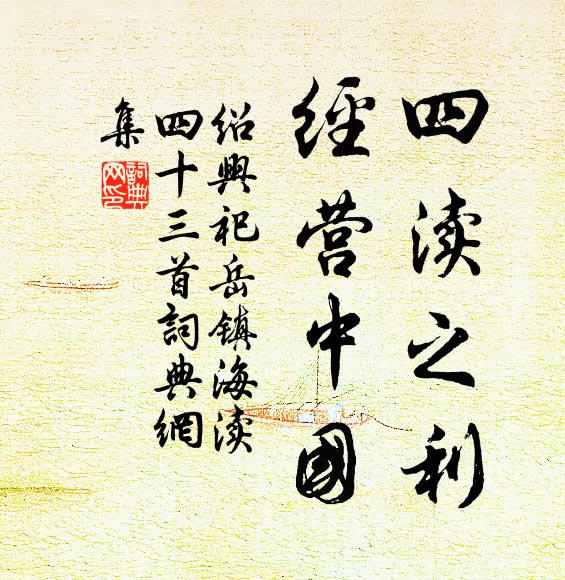 四渎之利
经营中國
绍興祀岳镇海渎
四十三首詞典網
集
詞典
网印